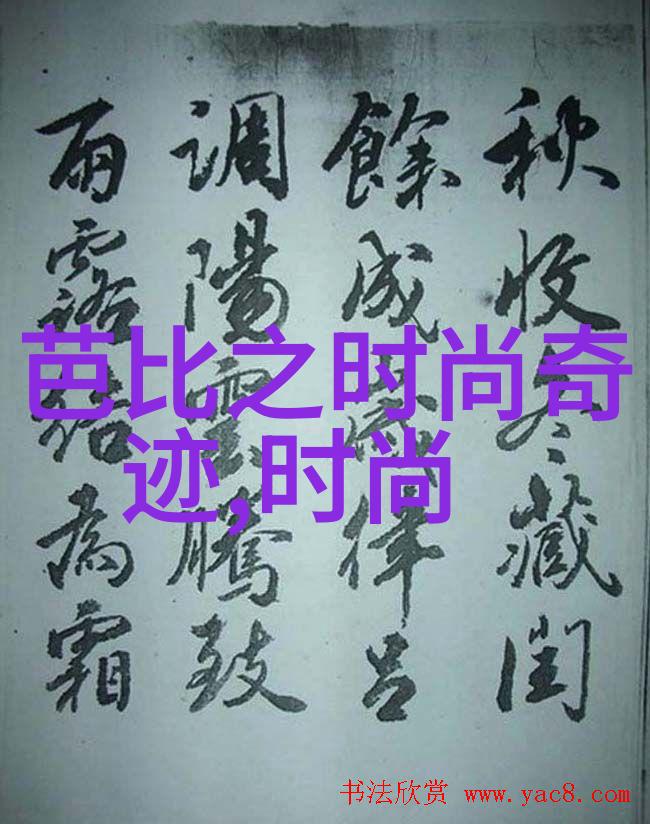 秋收冬藏閏
餘成歲律吕
調陽雲騰致
雨露結為霜
芭比之时尚奇
迹,时尚
书法欣赏 www.yac8.com